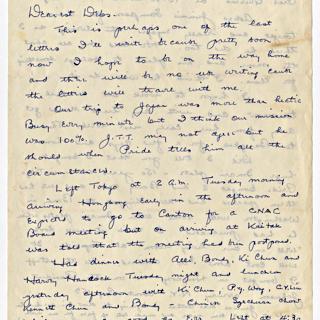 Dearest Debs -
This is perhaps one of the last
letters I'll write because pretty soon
now I hope to be on the way home
and there will be no use writing cause
the letters will travel with me.
Our trip to Japan was more than hectic
Busy every minute but I think our mission
was 100%. J.T.T. may not agree but he
should when Pride tells him all the
circumstances.
Left Tokyo at 2 A.M. Tuesday morning
arriving Hongkong early in the afternoon and
expected to go to Canton for a CNAC
Board meeting but on arriving at Kai Tak
was told that the meeting had been postponed.
Had dinner with Bondy, Ki Chun and
Harry Tuesday night and luncheon
yesterday afternoon with Ki Chun, P.Y. Wong,
Chun and Bondy - Chinese chow
Left at 4:30